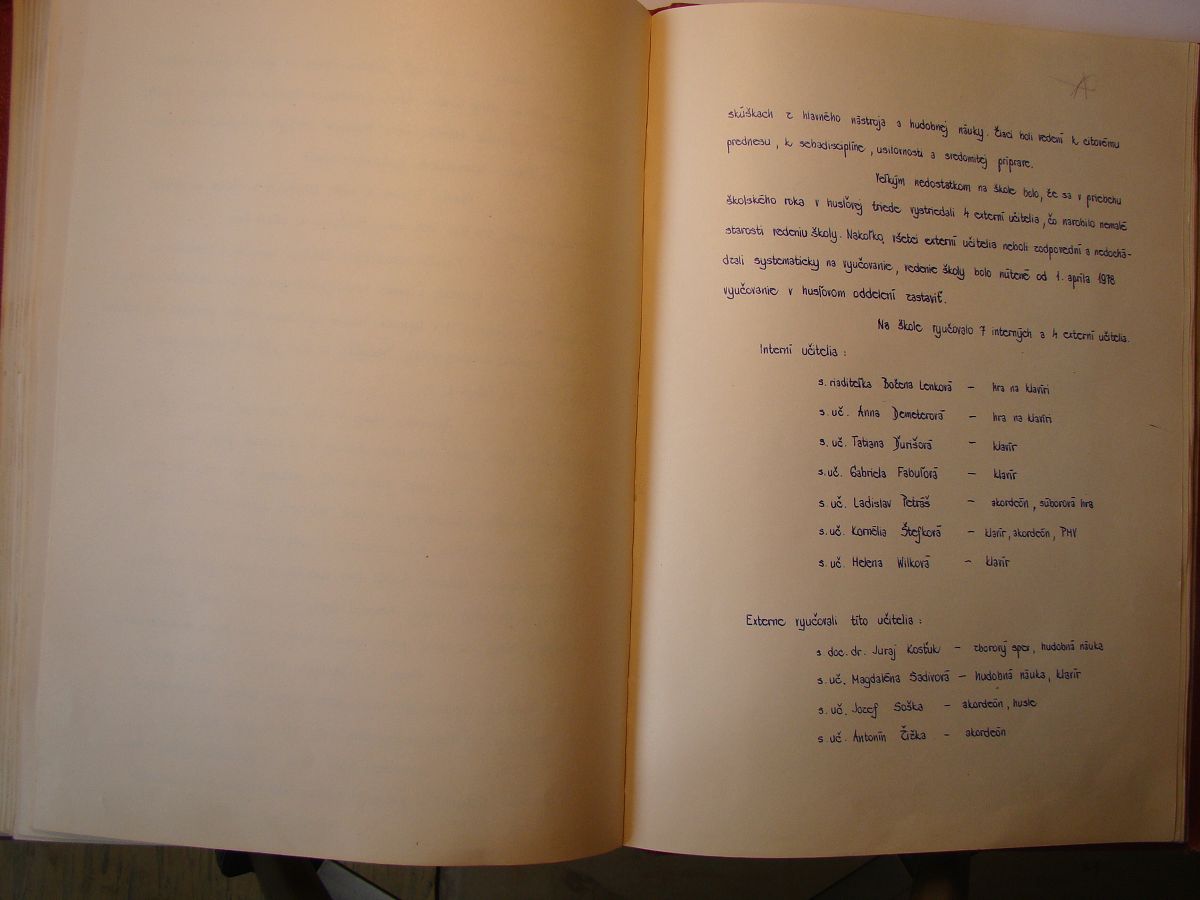 A
skúškach z hlavného nástroja a hudobnej náuky. Žiaci boli vedení k citovému
prednesu, k sebadisciplíne, usilovnosti a svedomitej príprave.
Veľkým nedostatkom na škole bolo, že sa v priebehu
školského roka v husľovej triede vystriedali 4 externí učitelia, čo narobilo nemalé
starosti vedeniu školy. Nakoľko, všetci externí učitelia neboli zodpovední a nedochá-
dzali systematicky na vyučovanie, vedenie školy bolo nútené od 1. apríla 1978
vyučovanie v husľovom oddelení zastaviť.
Na škole vyučovalo 7 interných a 4 externí učitelia.
Interní učitelia :
s. riaditeľka Božena Lenková – hra na klavíri
s. uč. Anna Demeterová – hra na klavíri
s. uč. Tatiana Ďurišová – klavír
s. uč. Gabriela Fabuľová – klavír
s. uč. Ladislav Petráš – akordeón, súborová hra
s. uč. Kornélia Štefková – klavír, akordeón, PHV
s. uč. Helena Wilková – klavír
Externe vyučovali títo učitelia :
s doc. dr. Juraj Kosťuk – zborový spev, hudobná náuka
s. uč. Magdaléna Sadivová – hudobná náuka, klavír
s. uč. Jozef Soška – akordeón, husle
s. uč. Antonín Čížka – akordeón